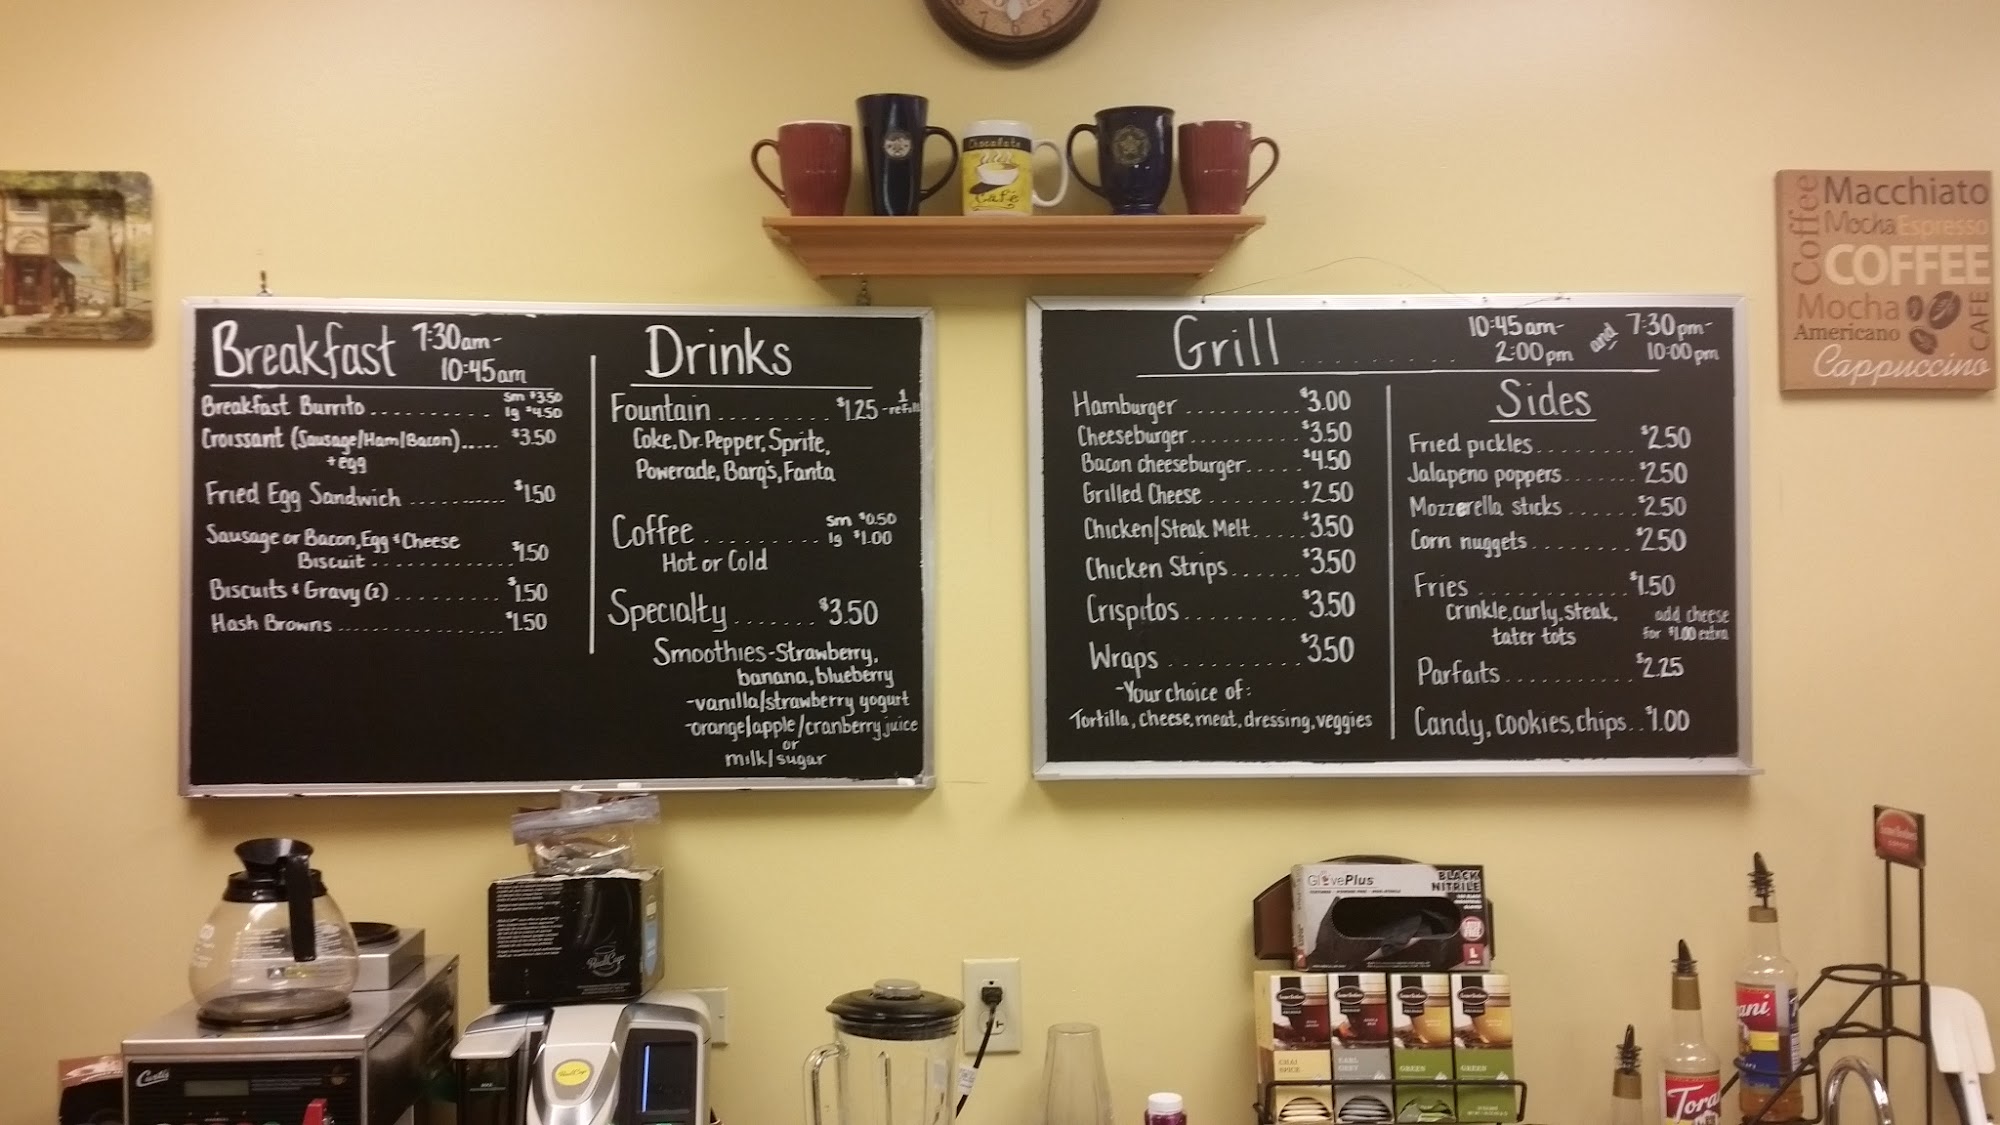 Chocolate
Café
Coffee
Macchiato
Mocha Espresso
COFFEE
Mocha
Americano
CAFE
Cappuccino
Breakfast 7:30am-
10:45am
Breakfast Burrito .......... sm $3.50
lg $4.50
Croissant (Sausage/Ham/Bacon)..... $3.50
+egg
Fried Egg Sandwich .......... $1.50
Sausage or Bacon, Egg & Cheese
Biscuit ............... $1.50
Biscuits & Gravy (2) ......... $1.50
Hash Browns ................. $1.50
Drinks
Fountain .......... $1.25 - 1 refill
Coke, Dr. Pepper, Sprite,
Powerade, Barq's, Fanta
Coffee .......... sm $0.50
lg $1.00
Hot or Cold
Specialty ....... $3.50
Smoothies - Strawberry,
banana, blueberry
-vanilla/strawberry yogurt
-orange/apple/cranberry juice
or
milk/sugar
Grill .......... 10:45am- and 7:30pm-
2:00pm 10:00pm
Hamburger .......... $3.00
Cheeseburger .......... $3.50
Bacon cheeseburger..... $4.50
Grilled Cheese ........ $2.50
Chicken/Steak Melt..... $3.50
Chicken Strips...... $3.50
Crispitos .......... $3.50
Wraps .......... $3.50
-Your choice of:
Tortilla, cheese, meat, dressing, veggies
Sides
Fried pickles........ $2.50
Jalapeno poppers....... $2.50
Mozzerella sticks ...... $2.50
Corn nuggets........ $2.50
Fries ........... $1.50
Crinkle, curly, steak, add cheese
tater tots for $1.00 extra
Parfaits........... $2.25
Candy, cookies, chips.. $1.00
Curtis
RealCup
GlovePlus
BLACK
NITRILE
L
CHAI
SPICE
EARL
GREY
GREEN
GREEN
Torani